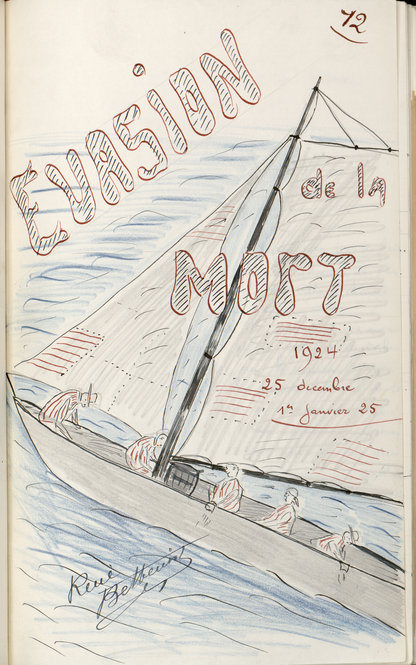 72
EVASiON
de la
MORT
1924
25 decembre
1er janvier 25
René
Belbenoit